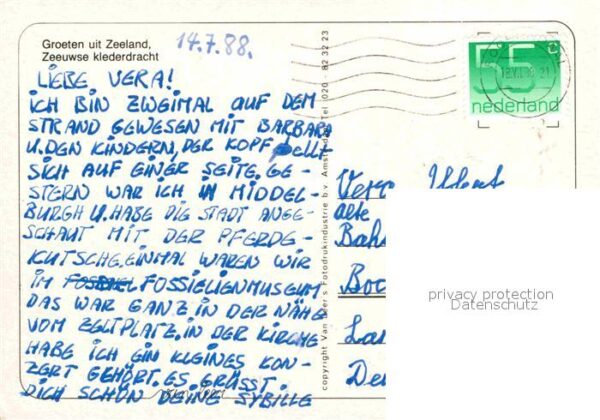 Groeten uit Zeeland,
Zeeuwse klederdracht
14.7.88.
LIEBE VERA!
ICH BIN ZWEIMAL AUF DEM
STRAND GEWESEN MIT BARBARA
U. DEN KINDERN, DER KOPF pellt
SICH AUF EINER SEITE. GE-
STERN WAR ICH IN MIDDEL-
BURGH U. HABE DIE STADT ANGE-
SCHAUT MIT DER PFERDE-
KUTSCHE. EINMAL WAREN WIR
IM FOSSIELIENMUSEUM
DAS WAR GANZ IN DER NÄHE
VOM ZELTPLATZ. IN DER KIRCHE
HABE ICH EIN KLEINES KON-
ZERT GEHÖRT. ES GRÜSST
DICH SCHÖN DEINE SYBILLE
copyright Van Leer's Fotodrukindustrie b.v. Amsterdam Tel. 020 - 82 32 23
55 c
nederland
Vera
alte
Bah
Boc
La
De
privacy protection
Datenschutz